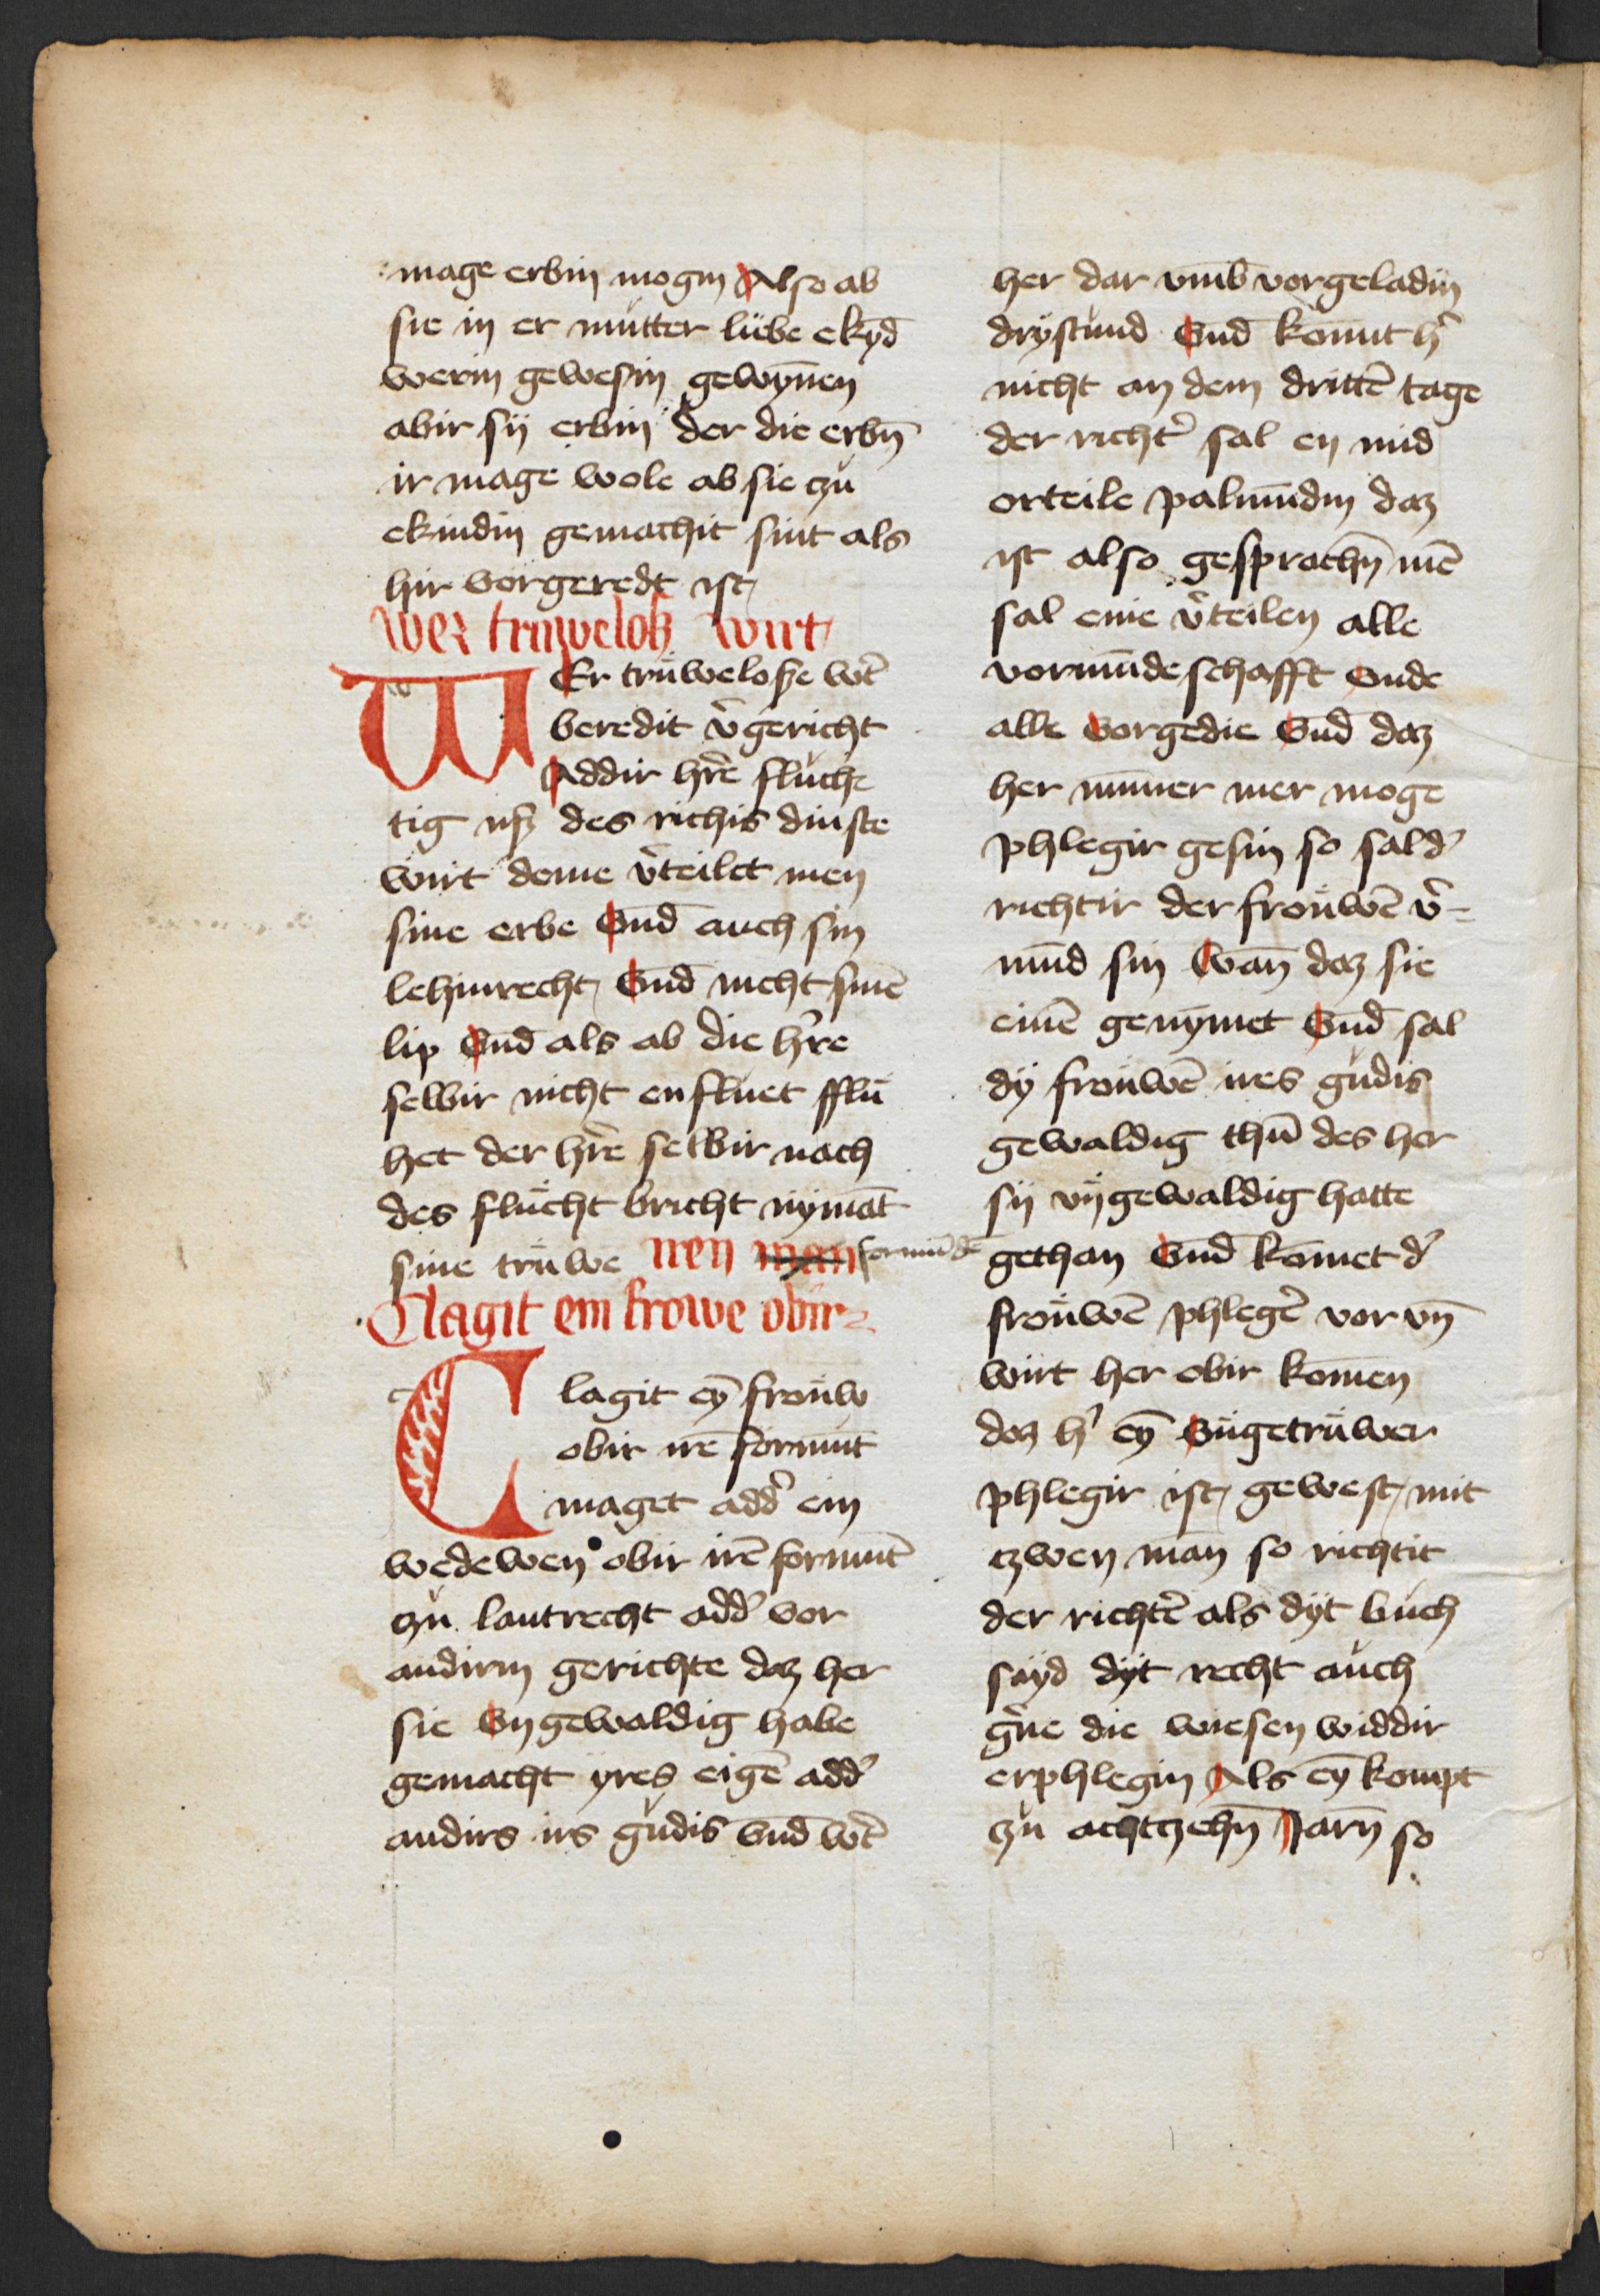 mage erbin mogin Also ab
sie in er mutter lube ekÿd
werin gewesin gewȳnen
abir sij erbin der die erbn̄
ir mage wole ab sie czu
ekindin gemachit sint als
hir vorgeredt ist
Wer truweloß wirt
WEr truwelosze wt̄
beredit v̄gericht
Addir hr̄e fluch
tig usz des richis dinste
wirt deme v̄teilet men
sine erbe Vnd̄ auch sin
lehinrecht Vnd̄ nicht sinē
lip Vnd̄ als ab die h̄re
selbir nicht en fluet fflu
het der hr̄e selbir nach
des flucht bricht nymāt
sine truwe nen man formūdē
Clagit ein frowe obir
Clagit eȳ frouw
obir irē formūt
maget add̄ ein
wedewen obir irē formūt
czu lantrecht add̄ vor
andirm gerichte daz her
sie Vngewaldig habe
gemacht yres eigē add̄
andirs irs gudis vnd̄ wt̄
her dar vmb̄ vorgeladin
drystund Vnd̄ komt h̄
nicht an dem drittē tage
der richt̄ sal en mid
orteile palmundin daz
ist also gesprochn̄ mē
sal eme v̄teilen alle
vormūdeschafft Vnde
alle Vorgedie Vnd̄ daz
her nūmer mer moge
phlegir gesin so sal d̄
richtir der frouwē v̄
mūd sin Wan̄ daz sie
einē genȳmet Vnd̄ sal
dÿ frouwē ires gudis
gewaldig thū des her
sij vngewaldig hatte
gethan Vnd̄ komet d̄
frouwē phleger̄ vor vn̄
wirt her obir komen
daz h̄ eȳ Vngetruwer
phlegir ist gewest mit
czwen man so richtit
der richter̄ als dÿt buch
sayd dÿt recht auch
gn̄e die wiesen widdir
erphlegin Als eȳ kompt
czu achtczehn̄ Jarn̄ so